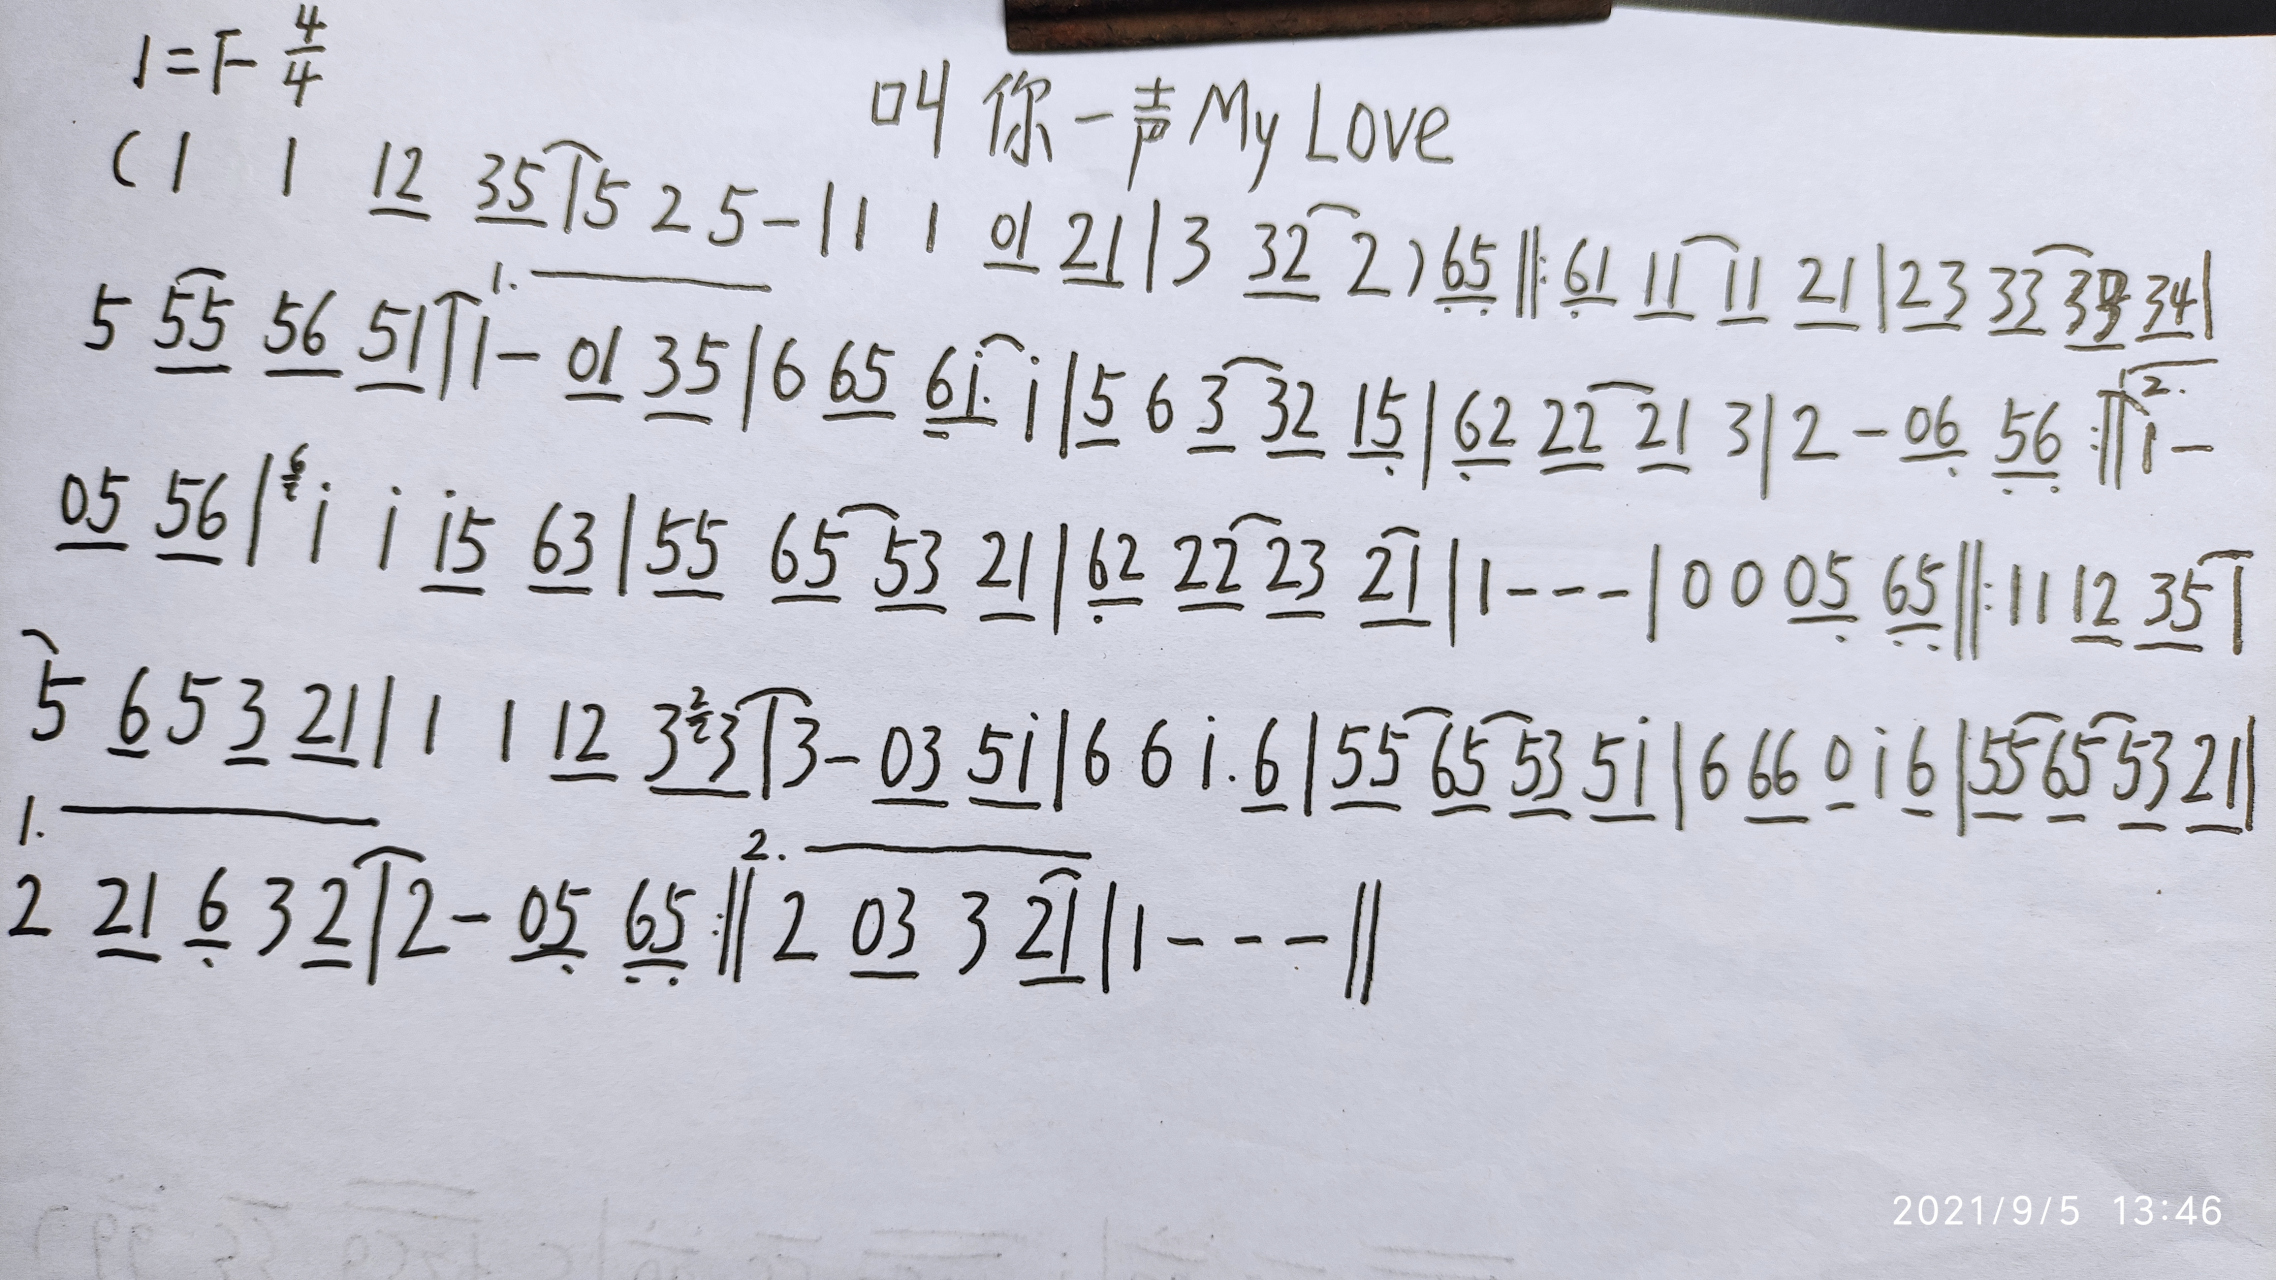 1=F 4/4
叫你一声My Love
(1 1 12 35|5 2 5-|1 1 01 21|3 32 2)65‖:61 11 11 21|23 33 33 34|
1.
5 55 56 51|1- 01 35|6 65 6i· i|5 6 3 32 15|62 22 21 3|2-06 56:‖1-
2.
05 56|6i i i5 63|55 65 53 21|62 22 23 21|1---|0 0 05 65‖:11 12 35|
5 6 5 3 21|1 1 12 323|3-03 5i|6 6 i.6|55 65 53 5i|6 66 0 i 6|55 65 53 21|
1.
2.
2 21 6 3 2|2-05 65:‖2 03 3 21|1---‖
2021/9/5 13:46